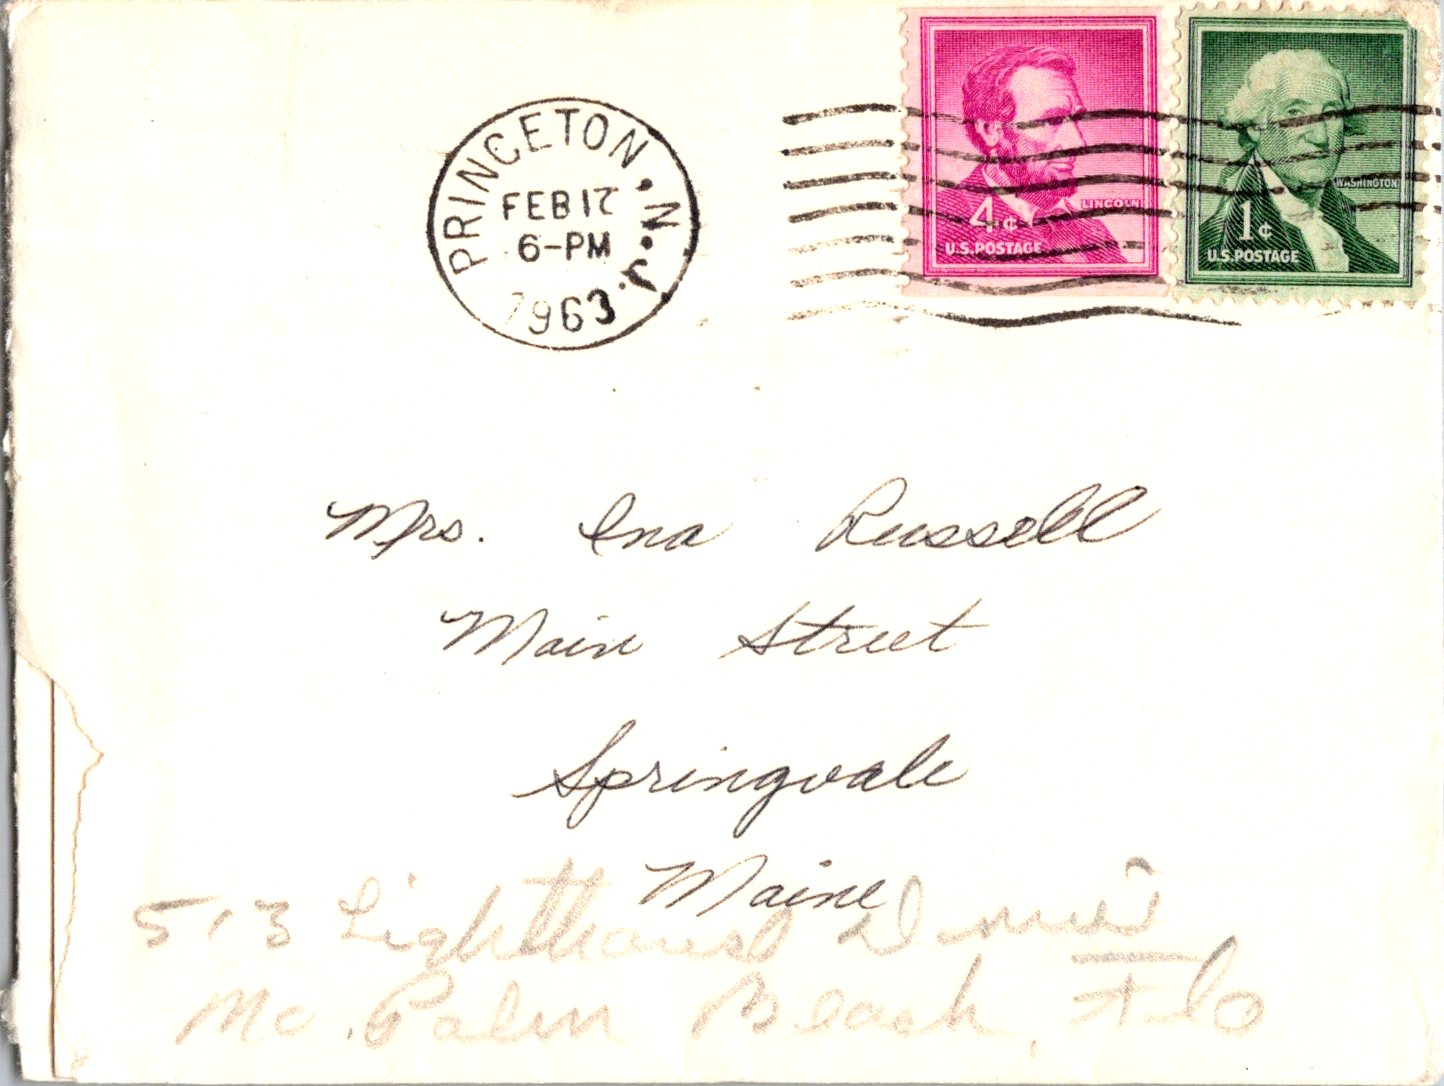 PRINCETON. N.J.
FEB 17
6-PM
1963
4¢
LINCOLN
U.S. POSTAGE
WASHINGTON
1¢
U.S. POSTAGE
Mrs. Ina Russell
Main Street
Springvale
Maine
513 Lighthouse D
Palm Beach, Flo